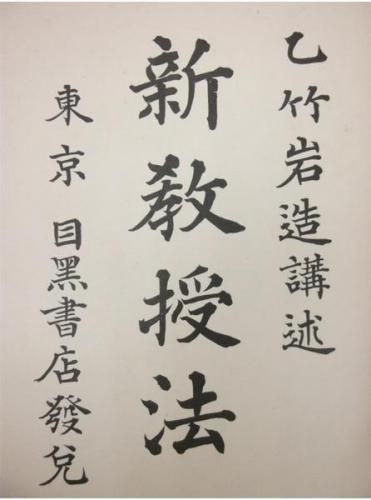 乙竹岩造講述
新教授法
東京 目黑書店發兌